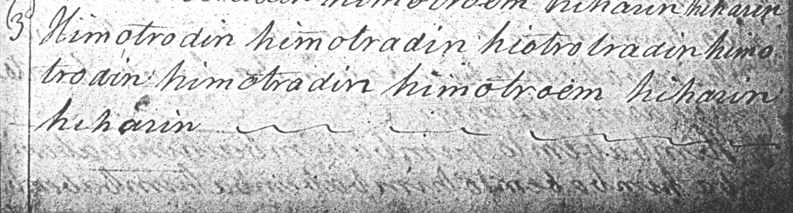 himotroem hiharin hiharin
3 Himotrodin himotradin hiotrotradin himo
trodin himotradin himotroem hiharin
hiharin